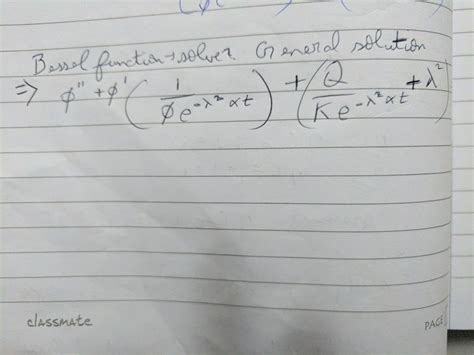 Bessel function → solve? General solution
⇒ φ'' + φ' ( 1 / φe^{-λ²αt} ) + ( Q / Ke^{-λ²αt} + λ²
classmate
PAGE